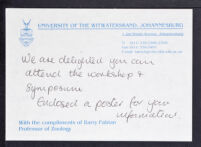 UNIVERSITY OF THE WITWATERSRAND, JOHANNESBURG
We are delighted you can
attend the workshop &
symposium
Enclosed a poster for your
information.
With the compliments of Barry Fabian
Professor of Zoology